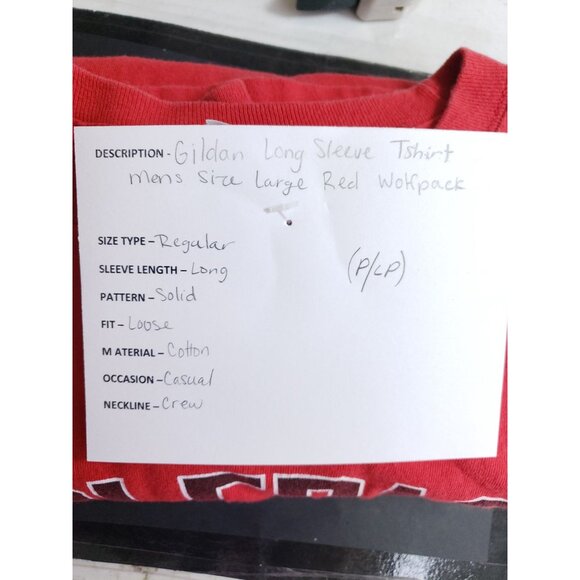 DESCRIPTION - Gildan Long Sleeve Tshirt
mens Size Large Red Wolfpack
SIZE TYPE – Regular
SLEEVE LENGTH – Long
(P/LP)
PATTERN – Solid
FIT – Loose
MATERIAL – Cotton
OCCASION – Casual
NECKLINE – Crew